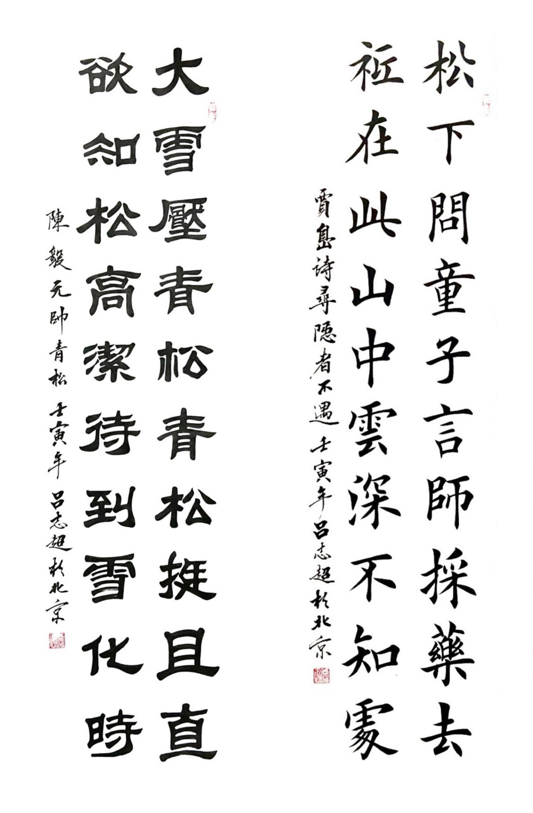 松下問童子言師採藥去
祗在此山中雲深不知處
賈島詩尋隱者不遇 壬寅年吕志超於北京
大雪壓青松青松挺且直
欲知松高潔待到雪化時
陳毅元帥青松 壬寅年吕志超於北京